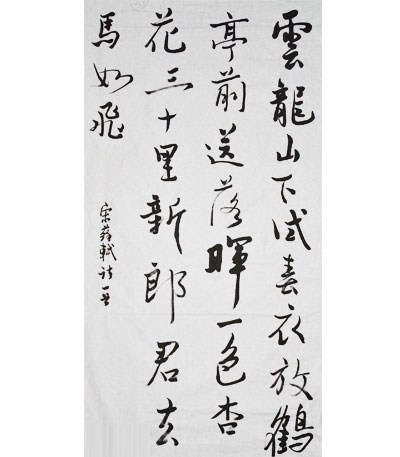 雲龍山下試春衣放鶴
亭前送落暉一色杏
花三十里新郎君去
馬如飛
宋蘇軾詩一首